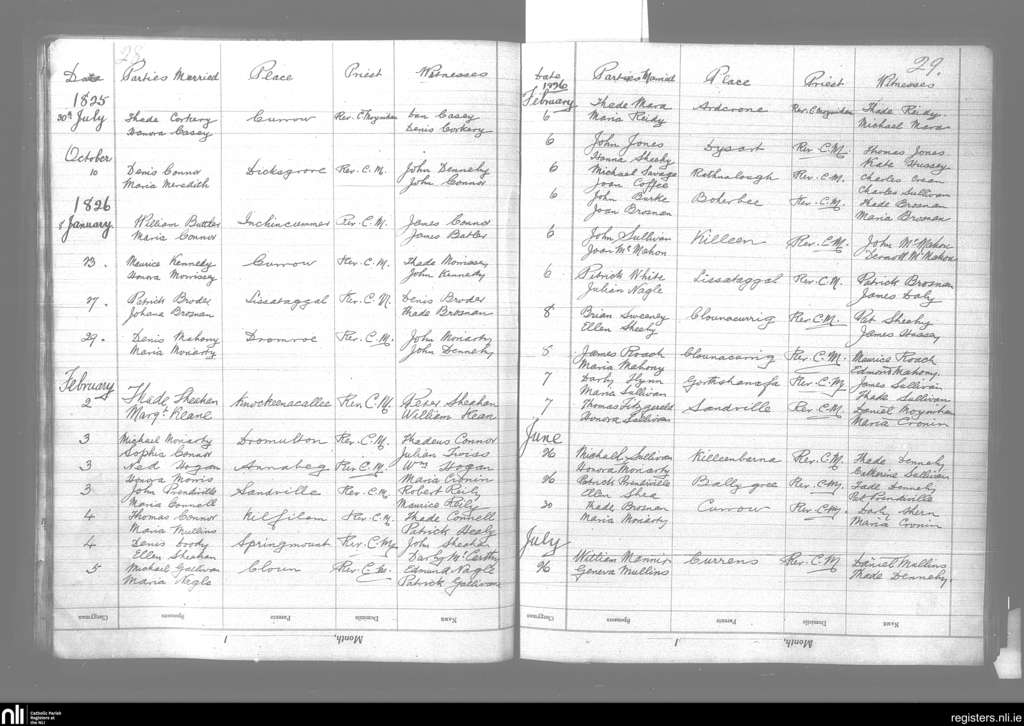 28
Date Parties Married Place Priest Witnesses
1825
30th July Thade Corkery Currow Rev. C Moynihan Con Casey
Honora Casey Denis Corkery
October
10 Denis Connor Dicksgrove Rev. C. M. John Dennehy
Maria Meredith John Connor
1826
8 January. William Butler Inchincummer Rev. C. M. James Connor
Maria Connor James Butler
23. Maurice Kennedy Currow Rev. C. M. Thade Morrissey
Honora Morrissey John Kennedy
27. Patrick Broder Lissataggal Rev. C. M. Denis Broder
Johana Brosnan Thade Brosnan
29. Denis Mahony Dromroe Rev. C. M. John Moriarty
Maria Moriarty John Dennehy
February
2 Thade Sheehan Knockeenacallee Rev. C. M. Peter Sheahan
Margt. Keane William Kean
3 Michael Moriarty Dromulton Rev. C. M. Thadeus Connor
Sophia Connor Julian Twiss
3 Ned Hogan Annabeg Rev. C. M. Wm Hogan
Honora Morris Maria Cronin
3 John Prendiville Sandville Rev. C. M. Robert Reily
Maria Connell Maurice Reily
4 Thomas Connor Kilfilam Rev. C. M. Thade Connell
Maria Mullins Patrick Healy
4 Denis Brody Springmount Rev. C. M. John Sheahan
Ellen Sheahan Darby McCarthy
5 Michael Gallivan Cloun Rev. C. M. Edmund Nagle
Maria Nagle Patrick Gallivan
Clergyman Sponsors Parents Domicile Name
Month, 1
29.
Date Parties Married Place Priest Witnesses
1826
February
6 Thade Mara Ardcrone Rev. C Moynihan Thade Reidy
Maria Reidy Michael Mara
6 John Jones Dysart Rev. C. M. Thomas Jones
Hannia Sheehy Kate Hussey
6 Michael Savage Rathnalough Rev. C. M. Charles Crean
Joan Coffee Charles Sullivan
6 John Burke Boherbee Rev. C. M. Thade Brosnan
Joan Brosnan Maria Brosnan
6 John Sullivan Killeen Rev. C. M. John McMahon
Joan McMahon Dermott McMahon
6 Patrick White Lissataggal Rev. C. M. Patrick Brosnan
Julian Nagle James Daly
8 Brian Sweeney Clounacurrig Rev. C. M. Pat Sheehy
Ellen Sheehy James Hussey
5 James Roach Clounacurrig Rev. C. M. Maurice Roach
Maria Mahony Edmond Mahony.
7 Darby Flynn Gortshanafa Rev. C. M. James Sullivan
Maria Sullivan Thade Sullivan
7 Thomas Fitzgerald Sandville Rev. C. M. Daniel Moynihan
Honora Sullivan Maria Cronin
June
26 Michael Sullivan Killeenbarna Rev. C. M. Thade Dennehy
Honora Moriarty Catherine Sullivan
26 Patrick Prendiville Ballygree Rev. C. M. Tade Dennehy
Ellen Shea Pat Prendiville
30 Thade Brosnan Currow Rev. C. M. Darby Ahern
Maria Moriarty Maria Cronin
July
26 William Mannix Currens Rev. C. M. Daniel Mullins
Geneva Mullins Thade Dennehy.
Clergyman Sponsors Parents Domicile Name
Month, 1
nli Catholic Parish
Registers at
the NLI
registers.nli.ie